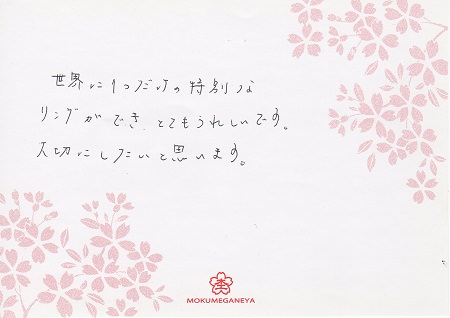 世界に1つだけの特別な
リングができ、とてもうれしいです。
大切にしたいと思います。
MOKUMEGANEYA